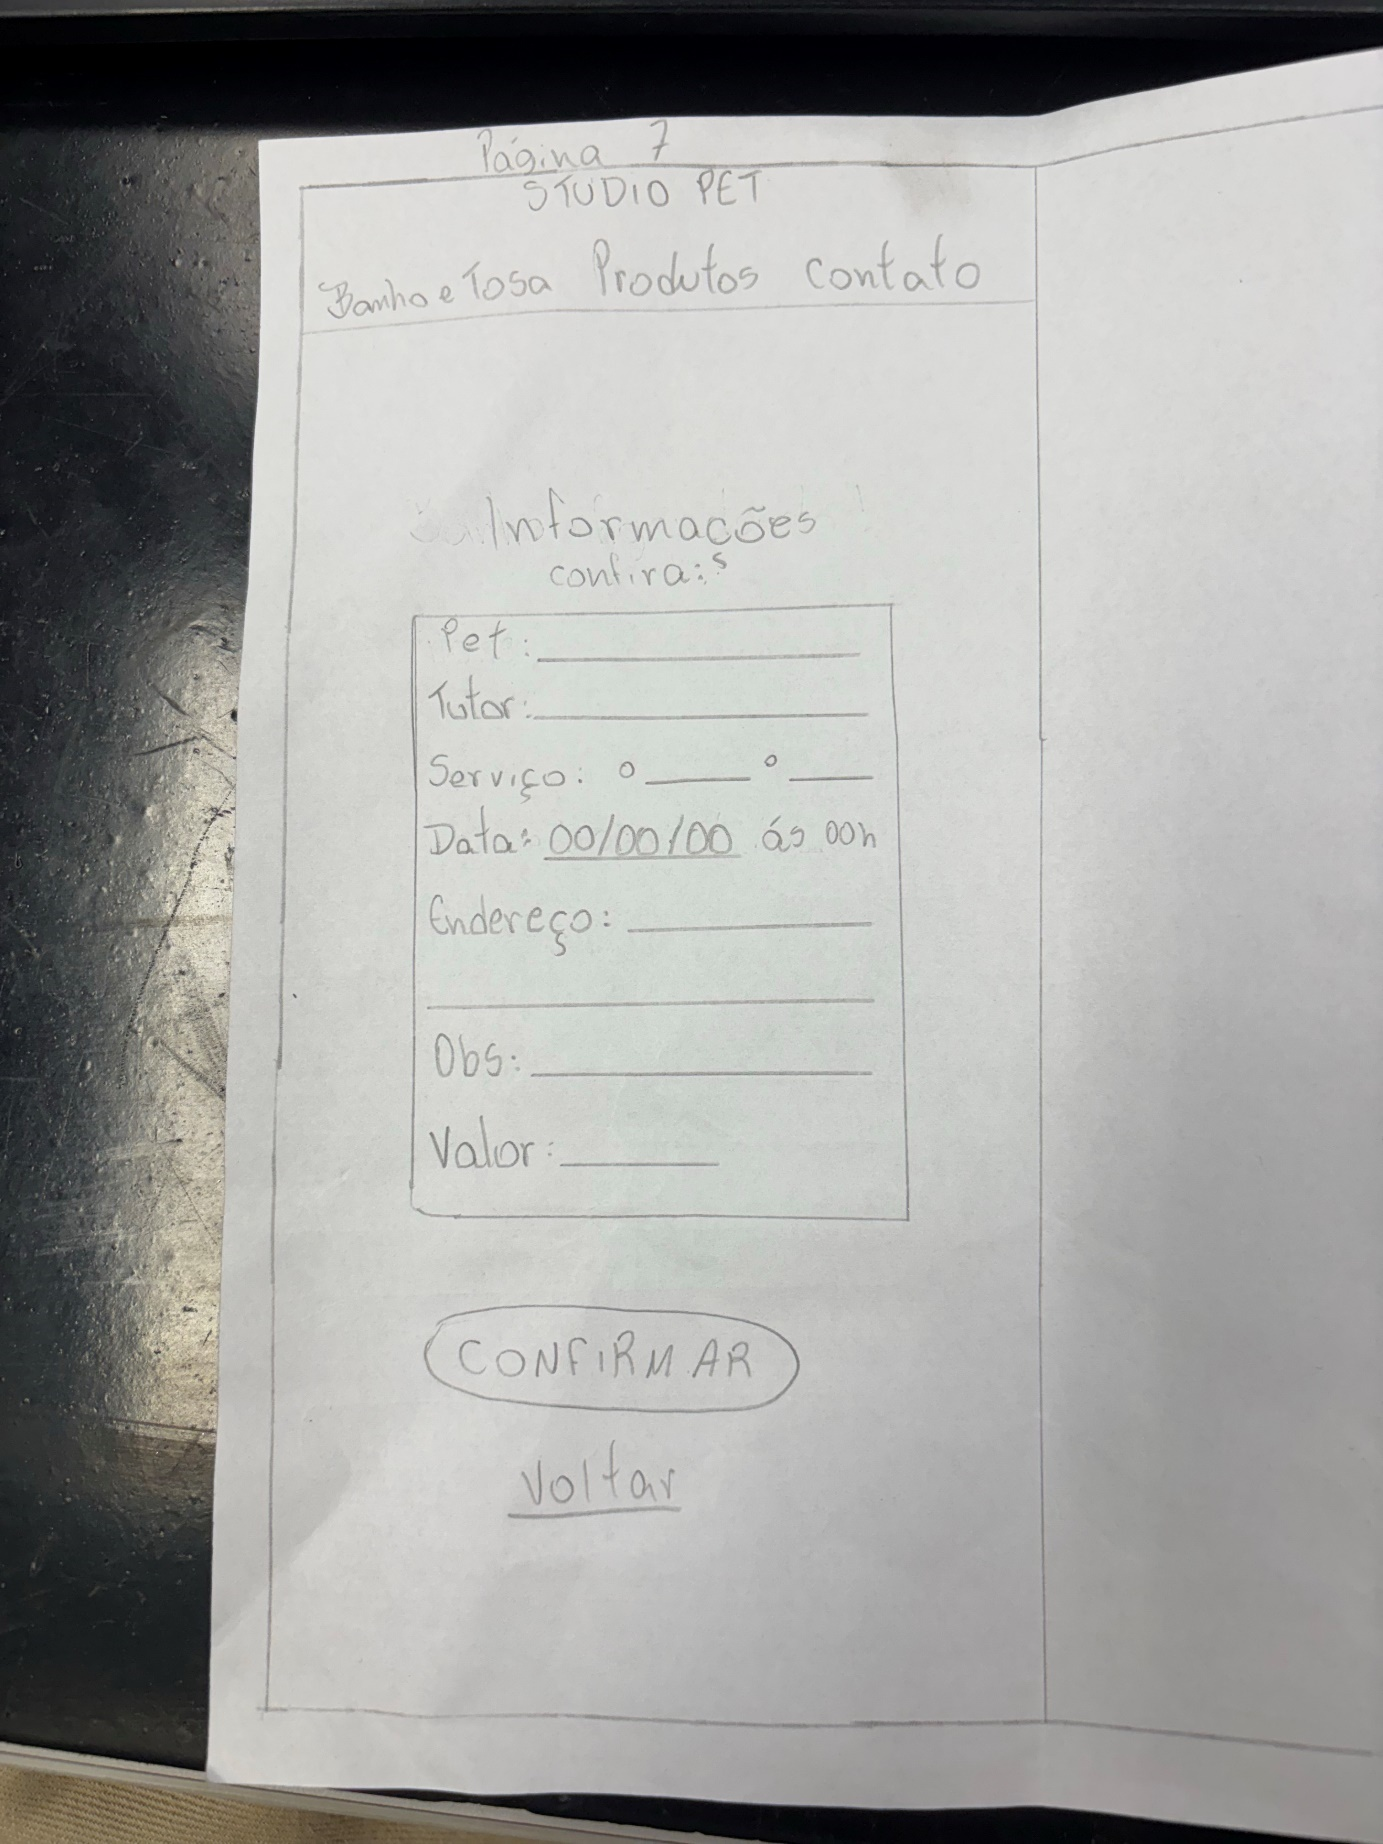 Página 7
STUDIO PET
Banho e Tosa Produtos contato
Informacões
confira:s
Pet:
Tutor:
Serviço:
Data: 00/00/00 ás 00h
Endereço:
Obs:
Valor:
CONFIRMAR
Voltar